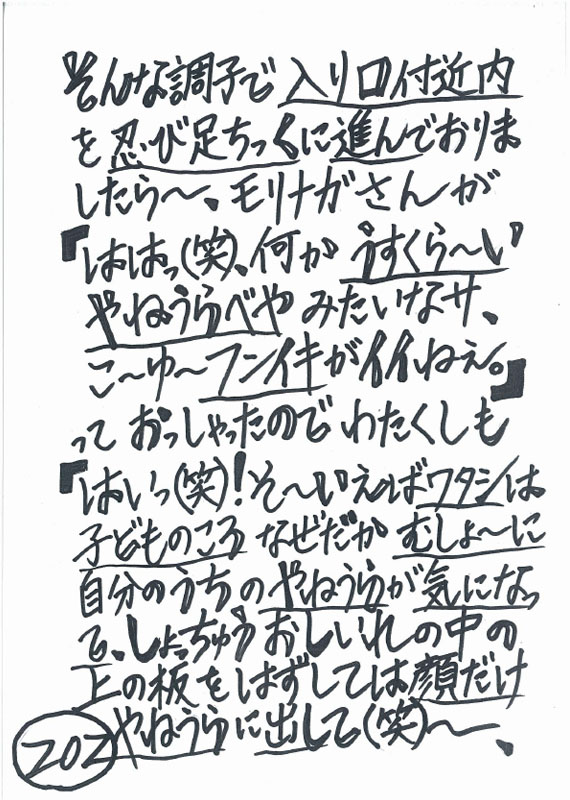 そんな調子で 入り口付近内
を忍び足ちっくに進んでおりま
したら〜、モリナガさんが
『ははっ(笑)、何か うすくら〜い
やねうらべや みたいなサ、
こ〜ゆ〜フンイキがイイねえ。』
って おっしゃったので わたくしも
『はいっ(笑)！そ〜いえばワタシは
子どものころ なぜだか むしょ〜に
自分のうちの やねうらが 気になっ
て、しょっちゅう おしいれの中の
上の板を はずしては顔だけ
やねうらに出して(笑)〜、
202